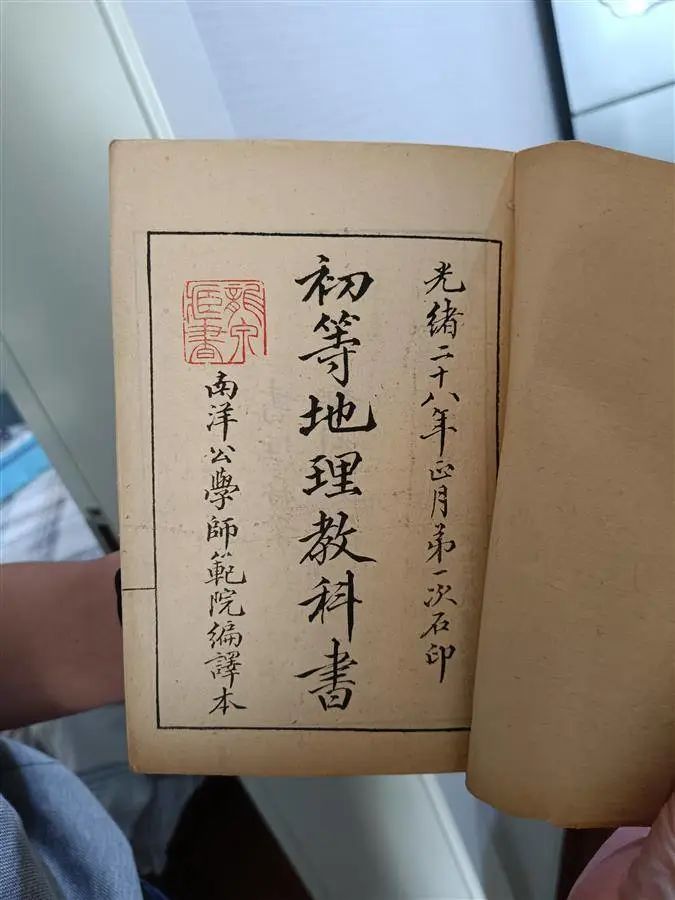 光緒二十八年正月第一次石印
初等地理教科書
南洋公學師範院編譯本